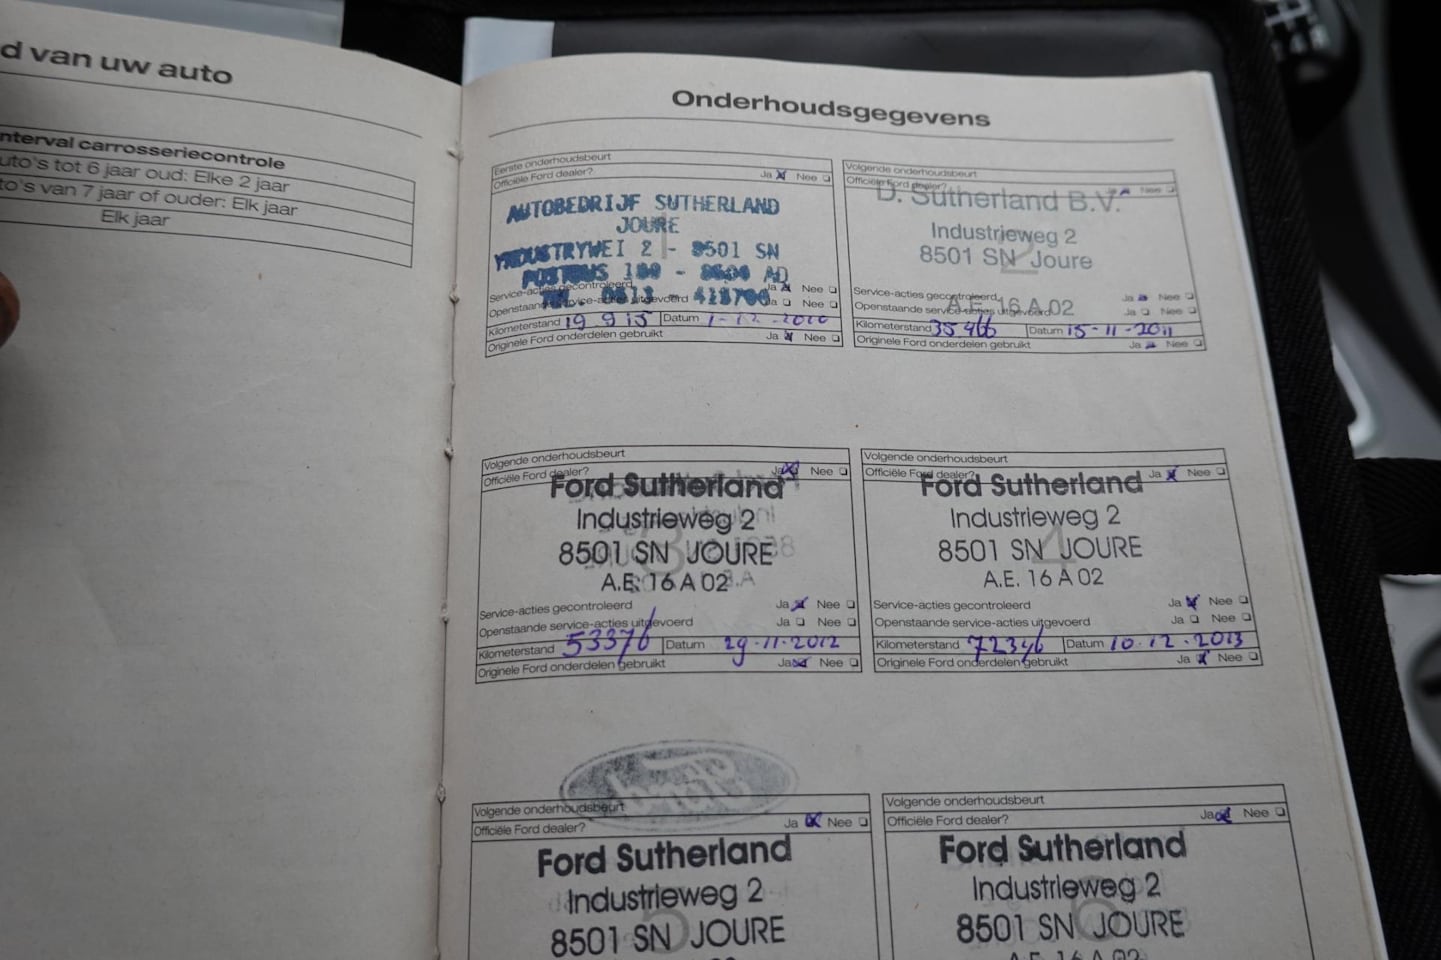 d van uw auto
nterval carrosseriecontrole
uto's tot 6 jaar oud: Elke 2 jaar
to's van 7 jaar of ouder: Elk jaar
Elk jaar
Onderhoudsgegevens
Eerste onderhoudsbeurt
Officiële Ford dealer? Ja Nee
AUTOBEDRIJF SUTHERLAND
JOURE
INDUSTRYWEI 2 - 8501 SN
POSTBUS 100 - AD
Service-acties gecontroleerd Ja Nee
Openstaande service-acties uitgevoerd Ja Nee
Kilometerstand 19 915 Datum
Originele Ford onderdelen gebruikt Ja Nee
Volgende onderhoudsbeurt
Officiële Ford dealer? Nee
D. Sutherland B.V.
Industrieweg 2
8501 SN Joure
2
Service-acties gecontroleerd Ja Nee
A.E. 16 A 02
Openstaande service-acties uitgevoerd Ja Nee
Kilometerstand 35466 Datum 15-11-2011
Originele Ford onderdelen gebruikt Ja Nee
Volgende onderhoudsbeurt
Officiële Ford dealer? Ja Nee
Ford Sutherland
Industrieweg 2
8501 SN JOURE
3
A.E. 16 A 02
Service-acties gecontroleerd Ja Nee
Openstaande service-acties uitgevoerd Ja Nee
Kilometerstand 53376 Datum 29-11-2012
Originele Ford onderdelen gebruikt Ja Nee
Volgende onderhoudsbeurt
Officiële Ford dealer? Ja Nee
Ford Sutherland
Industrieweg 2
8501 SN JOURE
4
A.E. 16 A 02
Service-acties gecontroleerd Ja Nee
Openstaande service-acties uitgevoerd Ja Nee
Kilometerstand 72346 Datum 10-12-2013
Originele Ford onderdelen gebruikt Ja Nee
Volgende onderhoudsbeurt
Officiële Ford dealer? Ja Nee
Ford Sutherland
Industrieweg 2
8501 SN JOURE
5
Volgende onderhoudsbeurt
Officiële Ford dealer? Ja Nee
Ford Sutherland
Industrieweg 2
8501 SN JOURE
6
A.E. 16 A 02